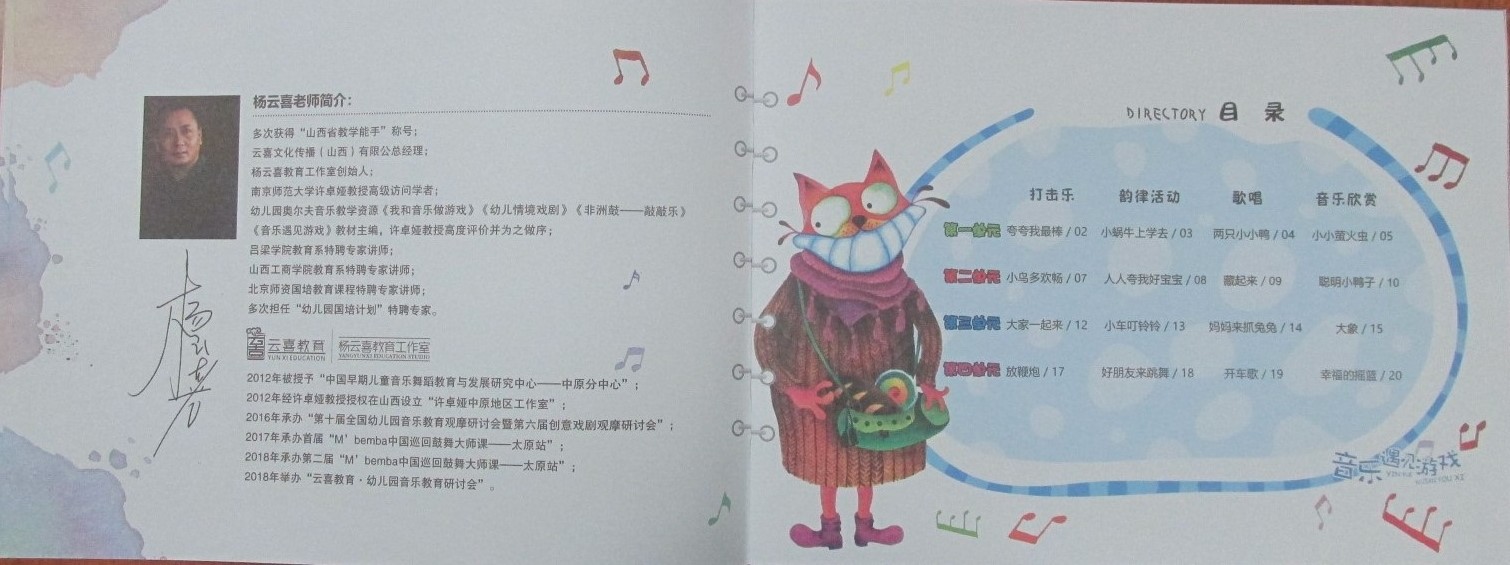 杨云喜老师简介：
多次获得“山西省教学能手”称号；
云喜文化传播（山西）有限公总经理；
杨云喜教育工作室创始人；
南京师范大学许卓娅教授高级访问学者；
幼儿园奥尔夫音乐教学资源《我和音乐做游戏》《幼儿情境戏剧》《非洲鼓——敲敲乐》
《音乐遇见游戏》教材主编，许卓娅教授高度评价并为之做序；
吕梁学院教育系特聘专家讲师；
山西工商学院教育系特聘专家讲师；
北京师资国培教育课程特聘专家讲师；
多次担任“幼儿园国培计划”特聘专家。
杨云喜
云喜
云喜教育 杨云喜教育工作室
YUN XI EDUCATION YANGYUNXI EDUCATION STUDIO
2012年被授予“中国早期儿童音乐舞蹈教育与发展研究中心——中原分中心”；
2012年经许卓娅教授授权在山西设立“许卓娅中原地区工作室”；
2016年承办“第十届全国幼儿园音乐教育观摩研讨会暨第六届创意戏剧观摩研讨会”；
2017年承办首届“M’bemba中国巡回鼓舞大师课——太原站”；
2018年承办第二届“M’bemba中国巡回鼓舞大师课——太原站”；
2018年举办“云喜教育·幼儿园音乐教育研讨会”。
DIRECTORY 目 录
打击乐 韵律活动 歌唱 音乐欣赏
第一单元 夸夸我最棒 / 02 小蜗牛上学去 / 03 两只小小鸭 / 04 小小萤火虫 / 05
第二单元 小鸟多欢畅 / 07 人人夸我好宝宝 / 08 藏起来 / 09 聪明小鸭子 / 10
第三单元 大家一起来 / 12 小车叮铃铃 / 13 妈妈来抓兔兔 / 14 大象 / 15
第四单元 放鞭炮 / 17 好朋友来跳舞 / 18 开车歌 / 19 幸福的摇篮 / 20
音乐遇见游戏